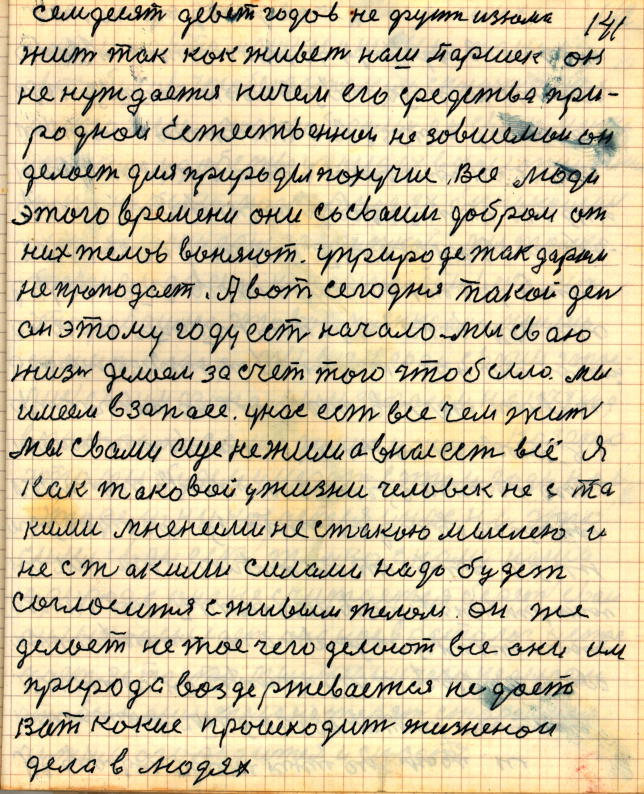 семдесят девет годов не друти изюма 141
жит так как живет наш Паршек он
не нуждается ничем его средства при-
родной Естественной не зовисемыи он
делоет для природы похучие. Все люди
этого времени они сосваим добром от
них телов воняют. уприроде так даром
не проподает. А вот сегодня такой ден
он этому году ест начало. мы сваю
жизн делаем за счет того что было. мы
имеем взапасе. унас ест все чем жит
мы свами еще не жили а внас ест всё Я
как таковой ужизни человек не с та
кими мнениями не стакою мыслею и
не с такими силами надо будет
согласится с живым телом. он же
делоет не тое чего делоют все они им
природа воздерживается не доеть
ват какие проиеходит жизненои
дела в людях